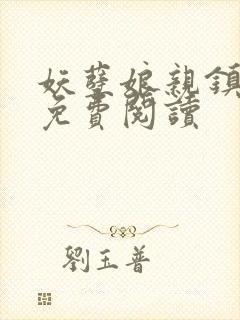 妖孽娘親鎮
免費閱讀
劉玉普